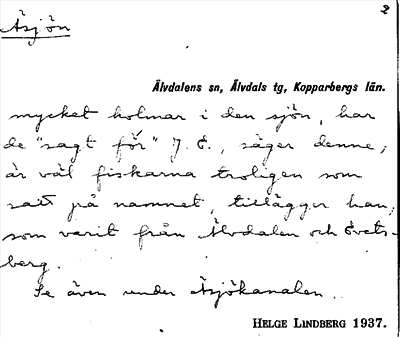 2
Åsjön
Älvdalens sn, Älvdals tg, Kopparbergs län.
mycket holmar i den sjön, har
de "sagt för" J. E., säger denne;
är väl fiskarna troligen som
satt på namnet, tillägger han,
som varit från Älvdalen och Evets-
berg.
Se även under Åsjökanalen.
HELGE LINDBERG 1937.